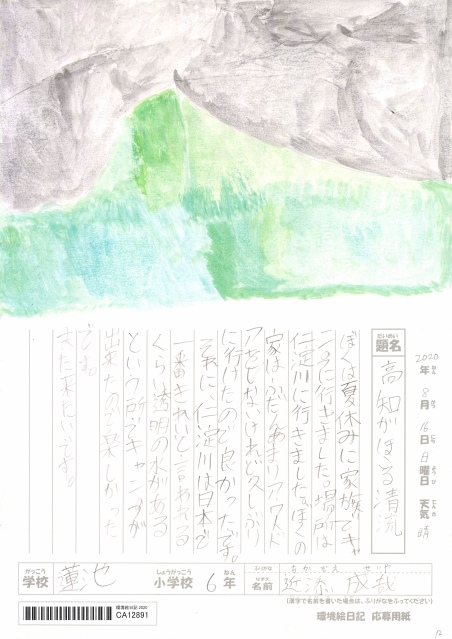 だいめい
題名
高知がほこる清流
2020年8月16日日曜日 天気 晴
ぼくは夏休みに家族でキャ
ンプに行きました。場所は
仁淀川に行きました。ぼくの
家は、ふだんあまりアウトド
アをしないけれど久しぶり
に行けたので良かったです。
それに、仁淀川は日本で
一番きれいと言われる
くらい透明の水がある
という所でキャンプが
出来たので楽しかった
です。
また来たいです。
がっこう
学校
蓮池
しょうがっこう
小学校
6
ねん
年
ふりがな
なまえ
名前
近添 成
(漢字で名前を書いた場合は、ふりがなをふってください)
環境絵日記 2020
CA12891
環境絵日記 応募用紙
12